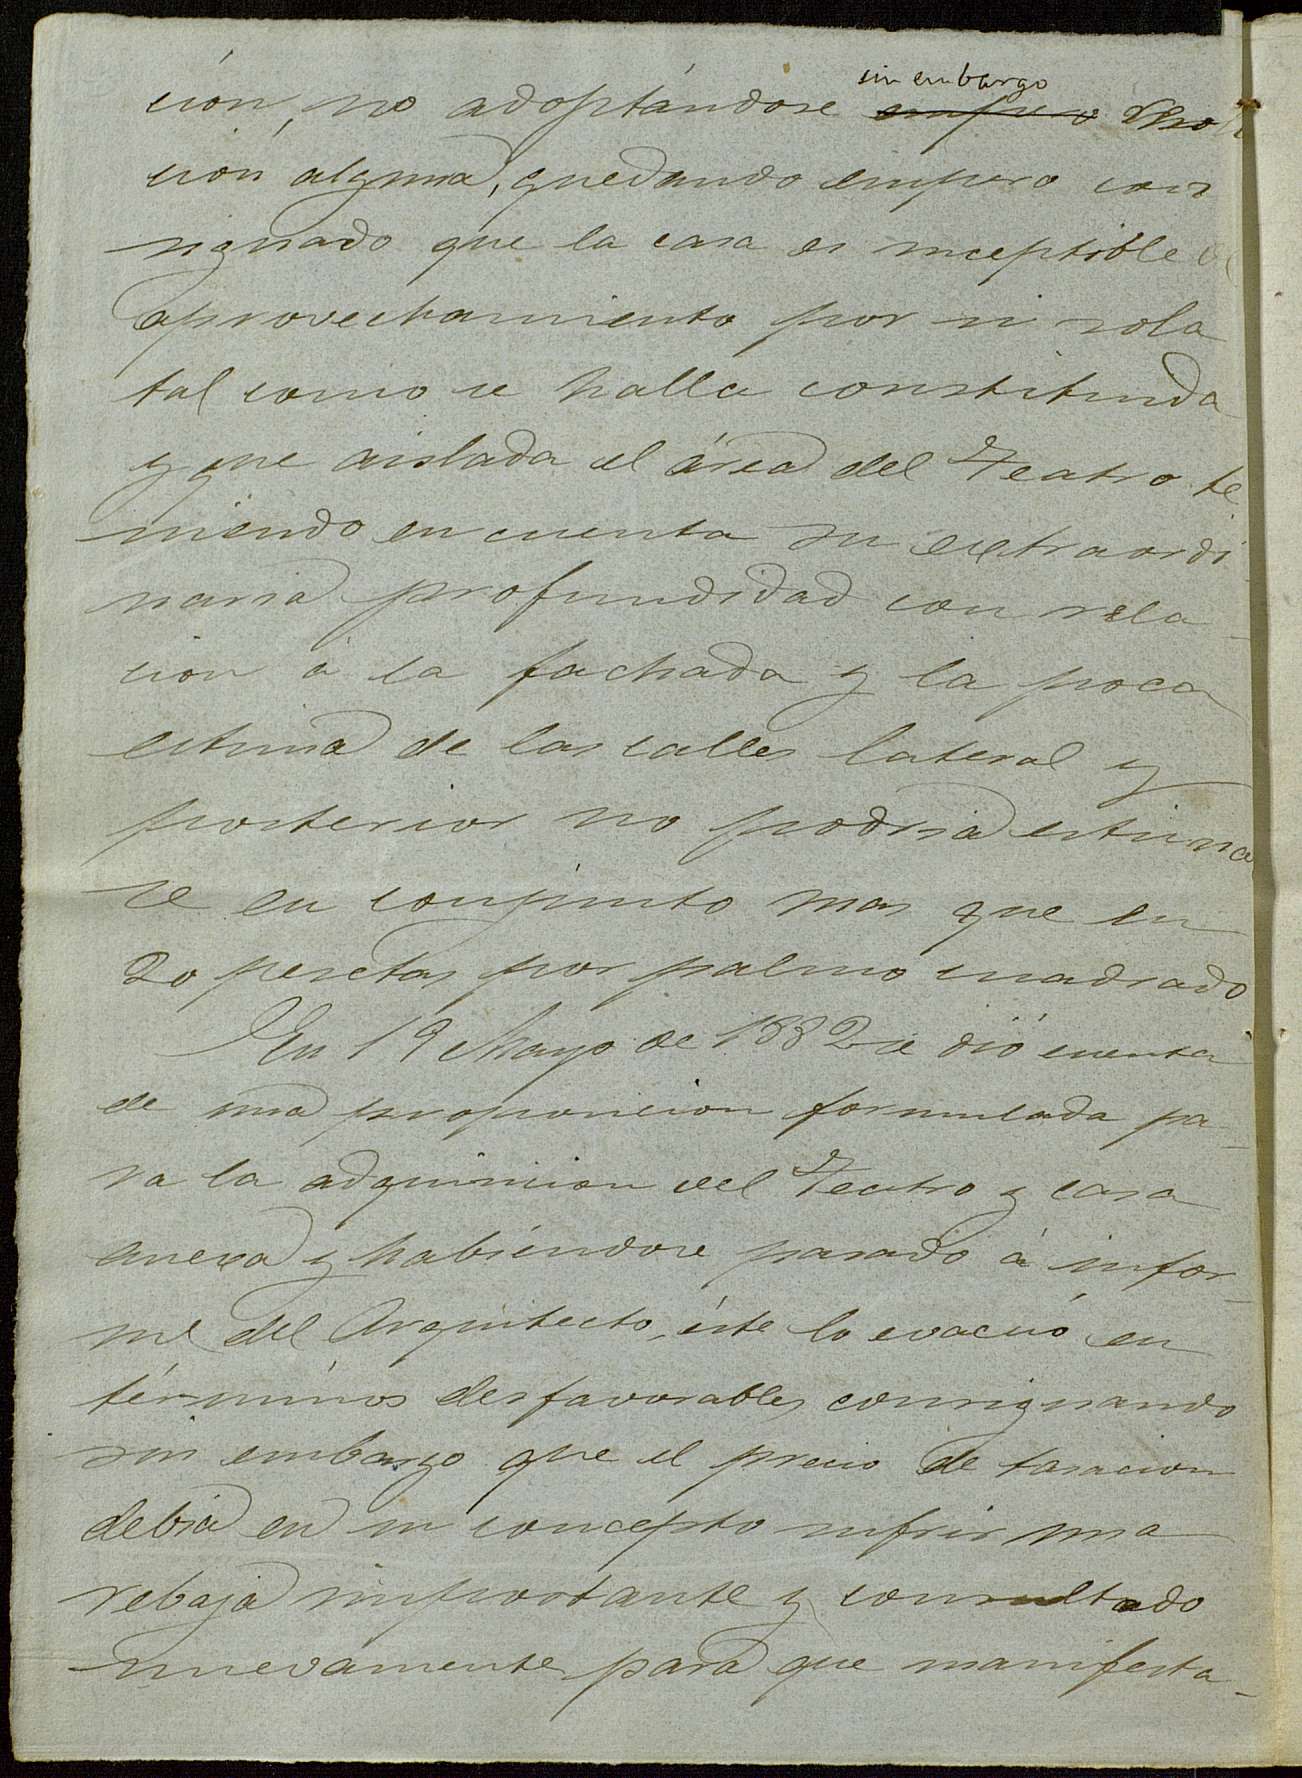 sin embargo
ción, no adoptándose empero reso
ción alguna, quedando empero con
signado que la casa es suceptible de
aprovechamiento por si sola
tal como se halla constituida
y que aislada el área del Teatro te
niendo en cuenta su extraordi
naria profundidad con rela-
cion á la fachada y la poca
estima de las calles lateral y
posterior no podria estimar
se en conjunto mas que en
20 pesetas por palmo cuadrado
En 19 Mayo de 1882 se dió cuenta
de una proposicion formulada pa-
ra la adquisicion del Teatro y casa
anexa y habiéndose pasado á infor-
me del Arquitecto, éste lo evacuó en
términos desfavorables consignando
sin embargo que el precio de tasacion
debia en su concepto sufrir una
rebaja importante y consultado
nuevamente para que manifesta-